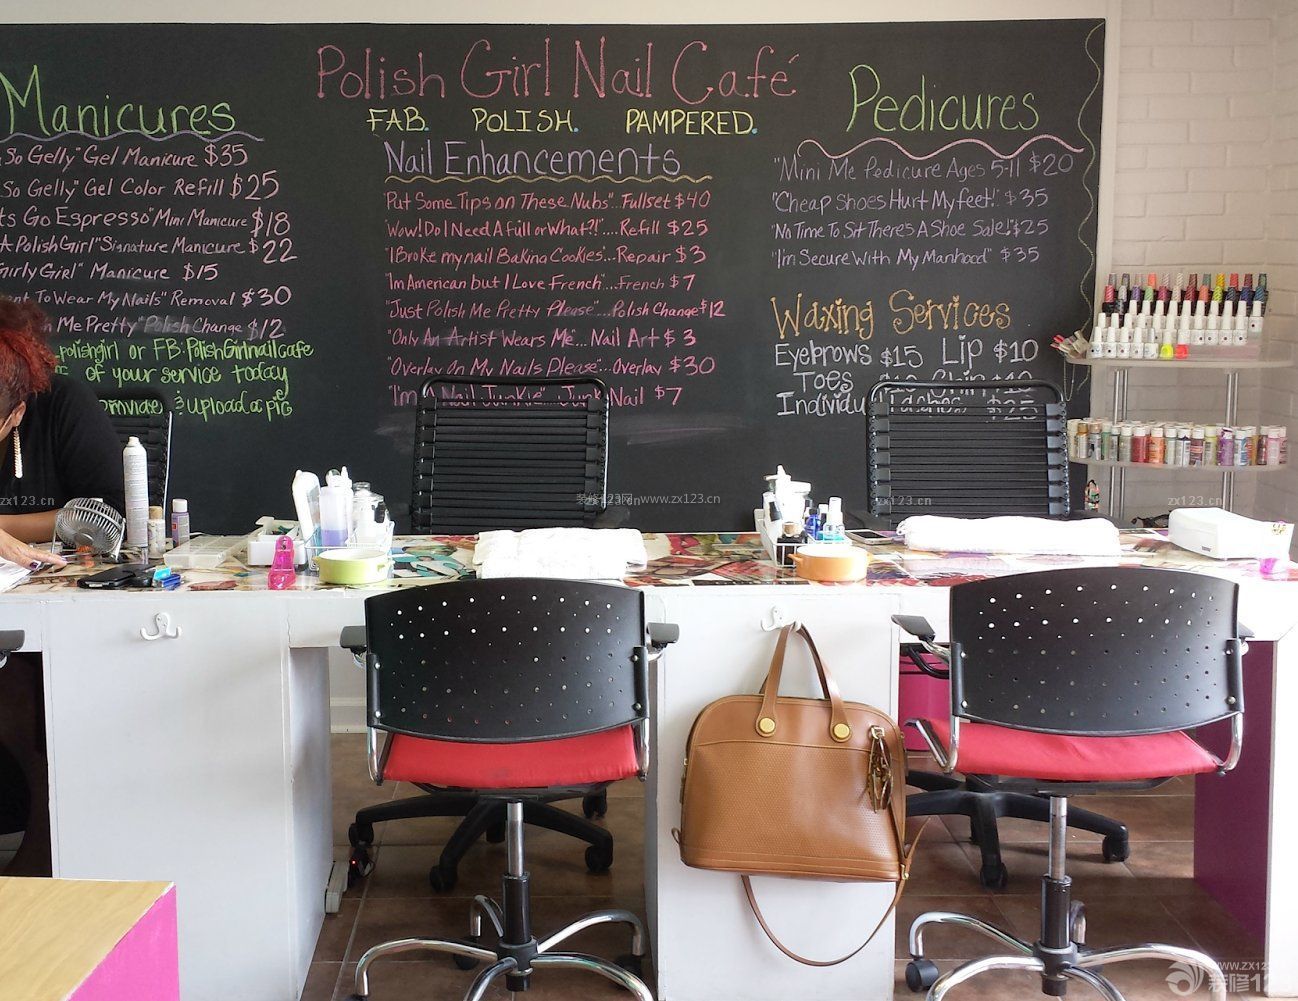 Polish Girl Nail Café
FAB. POLISH. PAMPERED.
Manicures
So Gelly" Gel Manicure $35
So Gelly" Gel Color Refill $25
ts Go Espresso" Mini Manicure $18
A Polish Girl" Signature Manicure $22
Girly Girl" Manicure $15
nt To Wear My Nails" Removal $30
Me Pretty" Polish Change $12
polishgirl or FB: PolishGirlnailcafe
of your service today
& upload a pic
Nail Enhancements
Put Some Tips on These Nubs".. Fullset $40
"Wow! Do I Need A Fill or What?!".... Refill $25
"I Broke my nail Baking Cookies"... Repair $3
"Im American but I Love French".... French $7
"Just Polish Me Pretty Please".... Polish Change $12
"Only An Artist Wears Me"... Nail Art $3
"Overlay On My Nails Please"... Overlay $30
"I'm A Nail Junkie" Junk Nail $7
Pedicures
"Mini Me Pedicure Ages 5-11 $20
"Cheap Shoes Hurt My feet!" $35
"No Time To Sit There's A Shoe Sale!" $25
"I'm Secure With My Manhood" $35
Waxing Services
Eyebrows $15 Lip $10
Toes Chin $10
Individual Laches $25
zx123.cn
装修123网 www.zx123.cn
zx123.cn
zx123.cn
www.zx123.cn
装修123